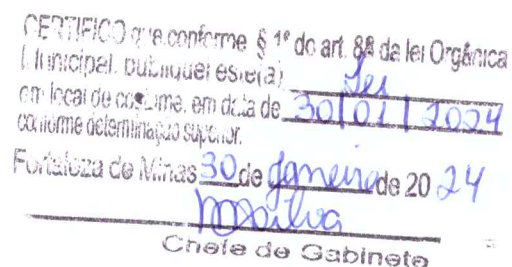 CERTIFICO que conforme § 1º do art. 88 da lei Orgânica
Municipal, publiquei este(a) Lei
em local de costume, em data de 30/01/2024
conforme determinação superior.
Fortaleza de Minas 30 de Janeiro de 2024
MSilva
Chefe de Gabinete